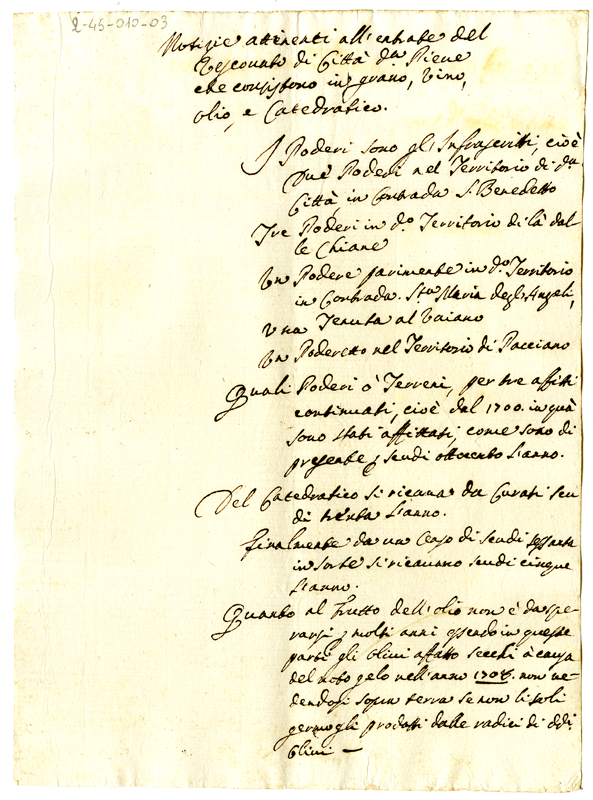 2-45-010-03
Notizie attinenti all'entrate del
Vescovato di Città da Pieve
che consistono in grano, vino,
olio, e Catedratico.
I Poderi sono gl'Infrascritti, cioè
Due Poderi nel Territorio di da
Città, in Contrada S. Benedetto
Tre Poderi in do Territorio di là dal
le Chiane
Un Podere parimente in do Territorio
in Contrada Sta Maria degl'Angeli,
Una Tenuta al Vaiano
Un Poderetto nel Territorio di Pacciano
Quali Poderi ò Terreni, per tre affitti
continuati, cioè dal 1700. in quà
sono stati affittati, come sono di
presente p scudi ottocento l'anno.
Del Catedratico si ricava da Curati scu
di trenta l'anno.
finalmente da un Censo di scudi sessanta
in sorte si ricavano scudi cinque
l'anno.
Quanto al frutto dell'olio non è da spe
rarsi p molti anni essendo in queste
parti gli Olivi affatto secchi à causa
del noto gelo nell'anno 1708. non ve-
dendosi sopra terra se non li soli
germogli prodotti dalle radici di ddi
Olivi —